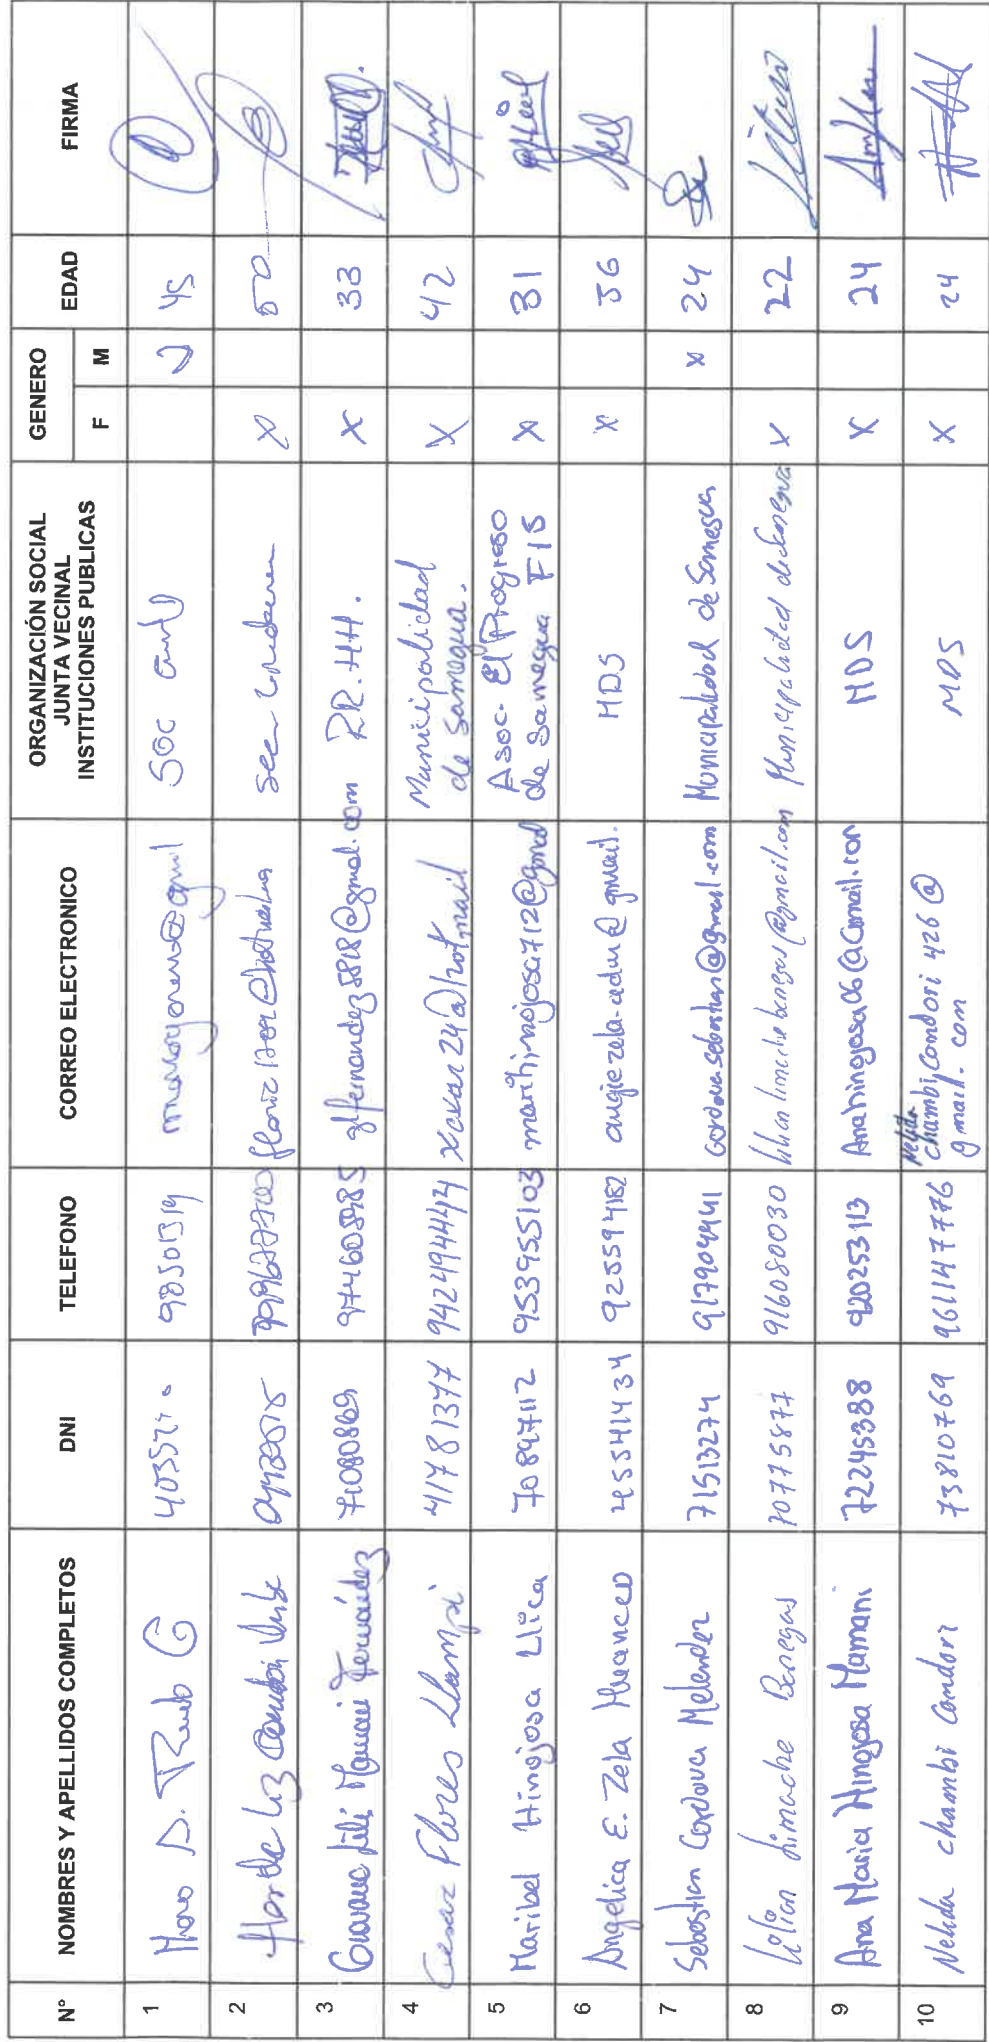 N° NOMBRES Y APELLIDOS COMPLETOS DNI TELEFONO CORREO ELECTRONICO ORGANIZACIÓN SOCIAL JUNTA VECINAL INSTITUCIONES PUBLICAS GENERO F M EDAD FIRMA
1 985501319 Soc 45
2 50
3 Mamani Fernandez 71080869 974608985 RR.HH. X 33
4 Cesar Flores Llampi 41781377 942494444 xaxar24@hotmail Municipalidad de Samegua. X 42
5 Maribel Hinojosa Llica 70897112 953955103 marihinojosa712@gmail Asoc. El Progreso de Samegua FIS X 31
6 Angelica E. Zela Huanceo 45541434 925594182 angiezela.edu@gmail. MDS X 36
7 Sebastian Cordova Melendez 71513274 917904441 cordovasebastian@gmail.com Municipalidad de Samegua X 24
8 Lilian Limache Banegas 70775877 916080030 Municipalidad de Samegua X 22
9 Ana Maria Hinojosa Mamani 72245388 920253113 Anahinojosa06@Gmail.com MDS X 24
10 Nelida chambi Condori 73810769 961147776 Nelida chambi Condori 426@ gmail.com MDS X 24